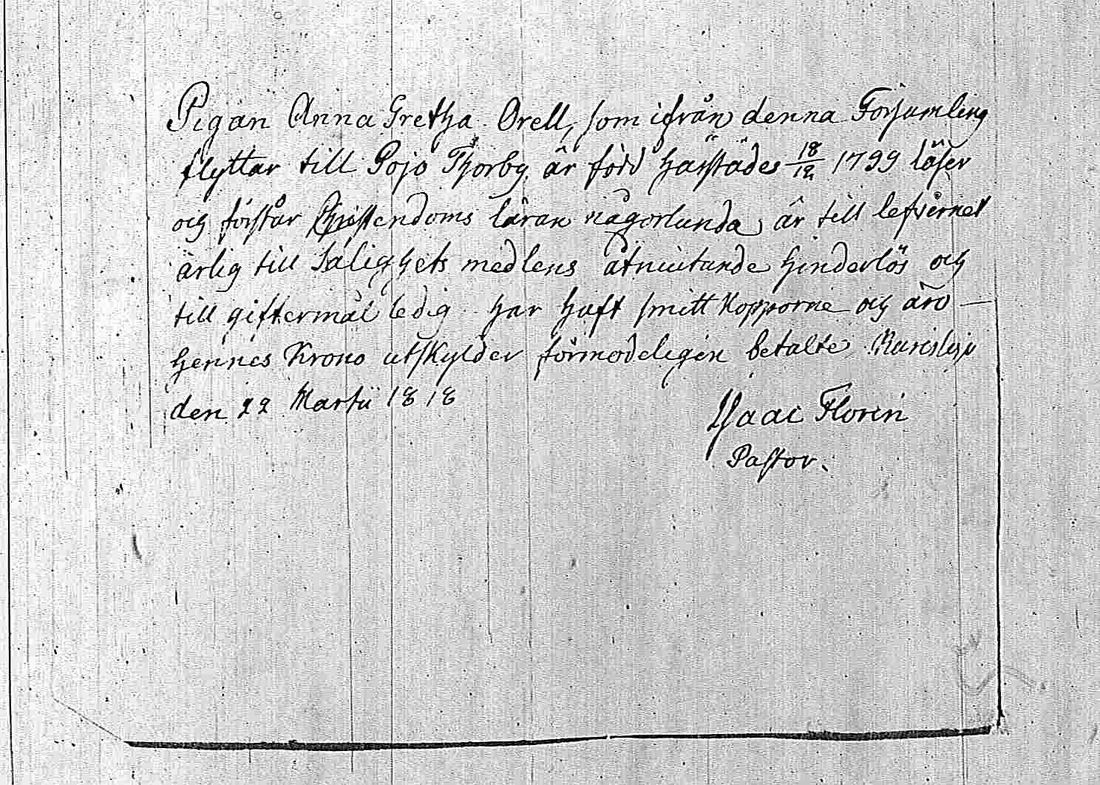 Pigan Anna Gretha Orell, som ifrån denna Församling
flyttar till Pojo Thorby är född härstädes 18/12 1799 läser
och förstår Christendoms läran någorlunda, är till lefvernet
ärlig till Salighets medlens åtniutande hinderlös och
till giftermål ledig. har haft smittkopporne och äro —
hennes Krono utskylder förmodeligen betalte. Karislojo
den 22 Martii 1818
Isaac Florin
Pastor.